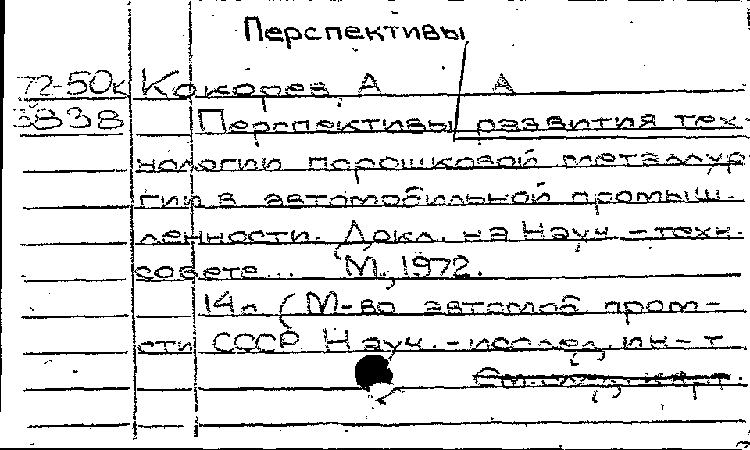 Перспективы
72-50к Кокорев А А
3838 Перспективы развития тех-
нологии порошковой металлур
гии в автомобильной промыш-
ленности. Докл. на Науч.-техн.
совете... М., 1972.
14л (М-во автомоб пром-
сти СССР Науч.-исслед. ин-т
См. след. карт.